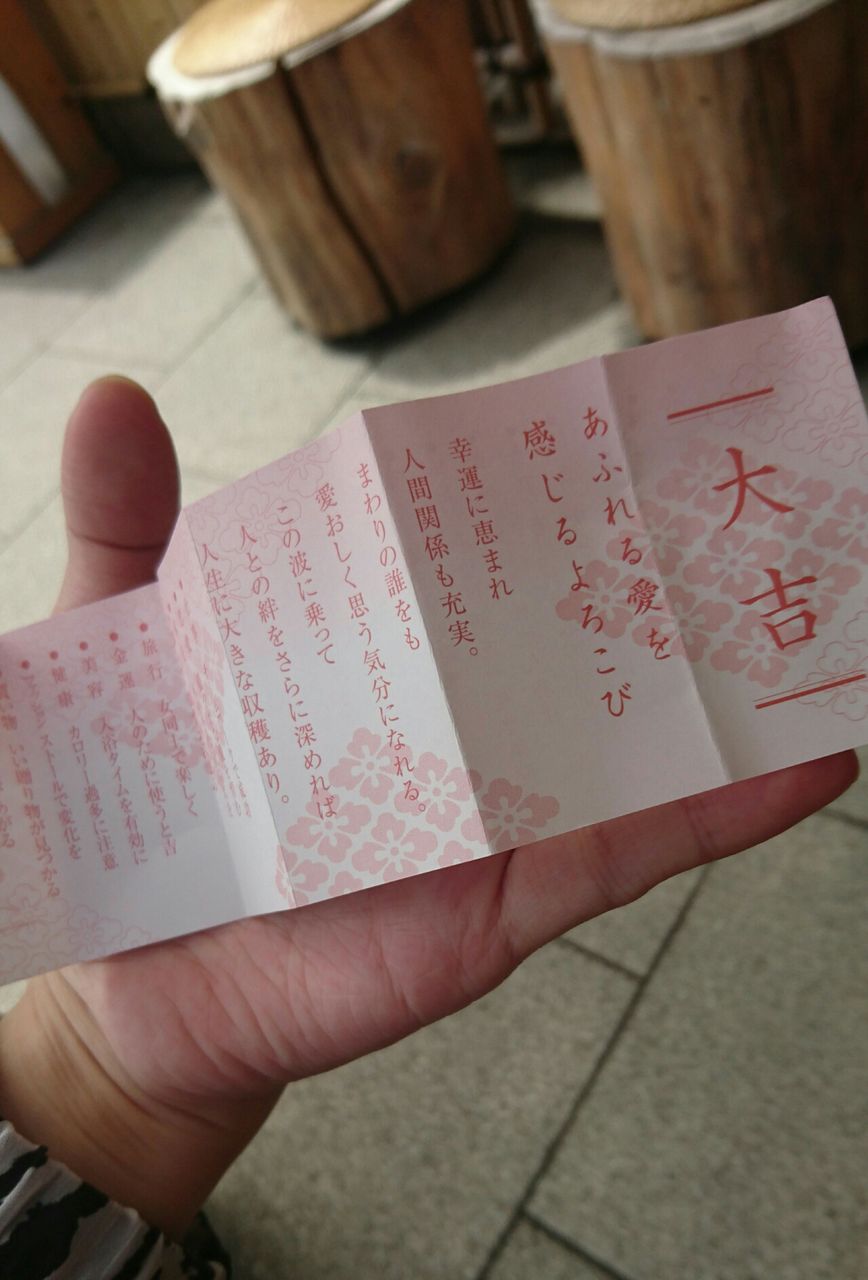 大吉
あふれる愛を
感じるよろこび
幸運に恵まれ
人間関係も充実。
まわりの誰をも
愛おしく思う気分になれる。
この波に乗って
人との絆をさらに深めれば
人生に大きな収穫あり。
●旅行 女同士で楽しく
●金運 人のために使うと吉
●美容 入浴タイムを有効に
●健康 カロリー過多に注意
●ファッション ストールで変化を
買物 いい贈り物が見つかる